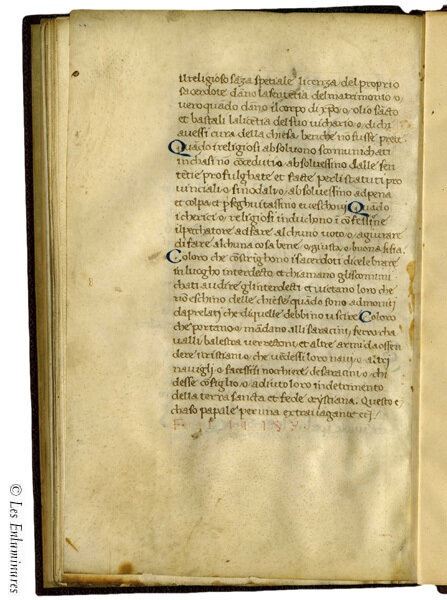 il religioso saza spetiale licenza del proprio
sacerdote dano la sentetia del matrimonio o
vero quado dano il corpo di xpo o olio sacto
et bastali la licetia del suo vichario o di chi
avessi cura della chiesa benche no fusse prete
Quado i religiosi absolvono scomunichati
in chasi no coceduti o absolvessino dalle sen
tetie promulghate et facte per li statuti pro
vinciali o sinodali o absolvessino ad pena
et colpa et i veschovi Quado
i cherici o religiosi induchono i
il pechatore ad fare alchuno voto o ad giurare
di fare alchuna cosa bene o giusta o buona
Coloro che constrighono i sacerdoti di celebrare
in luogho interdecto et chiamano gli scomuni
chati a udire gli interdecti et vietano loro che
no eschino delle chiese quado sono admoniti
da prelati che di quelle debbino uscire Coloro
che portano o madano alli saracini ferro cha
valli balestra et altre armi da offe
dere i cristiani o che vedessi loro navi o altri
navigli o facessisi nochiere de saracini o chi
desse cosiglio o adiuto loro in detrimento
della terra sancta et fede crystiana. Questo e
chaso papale per una extravagante